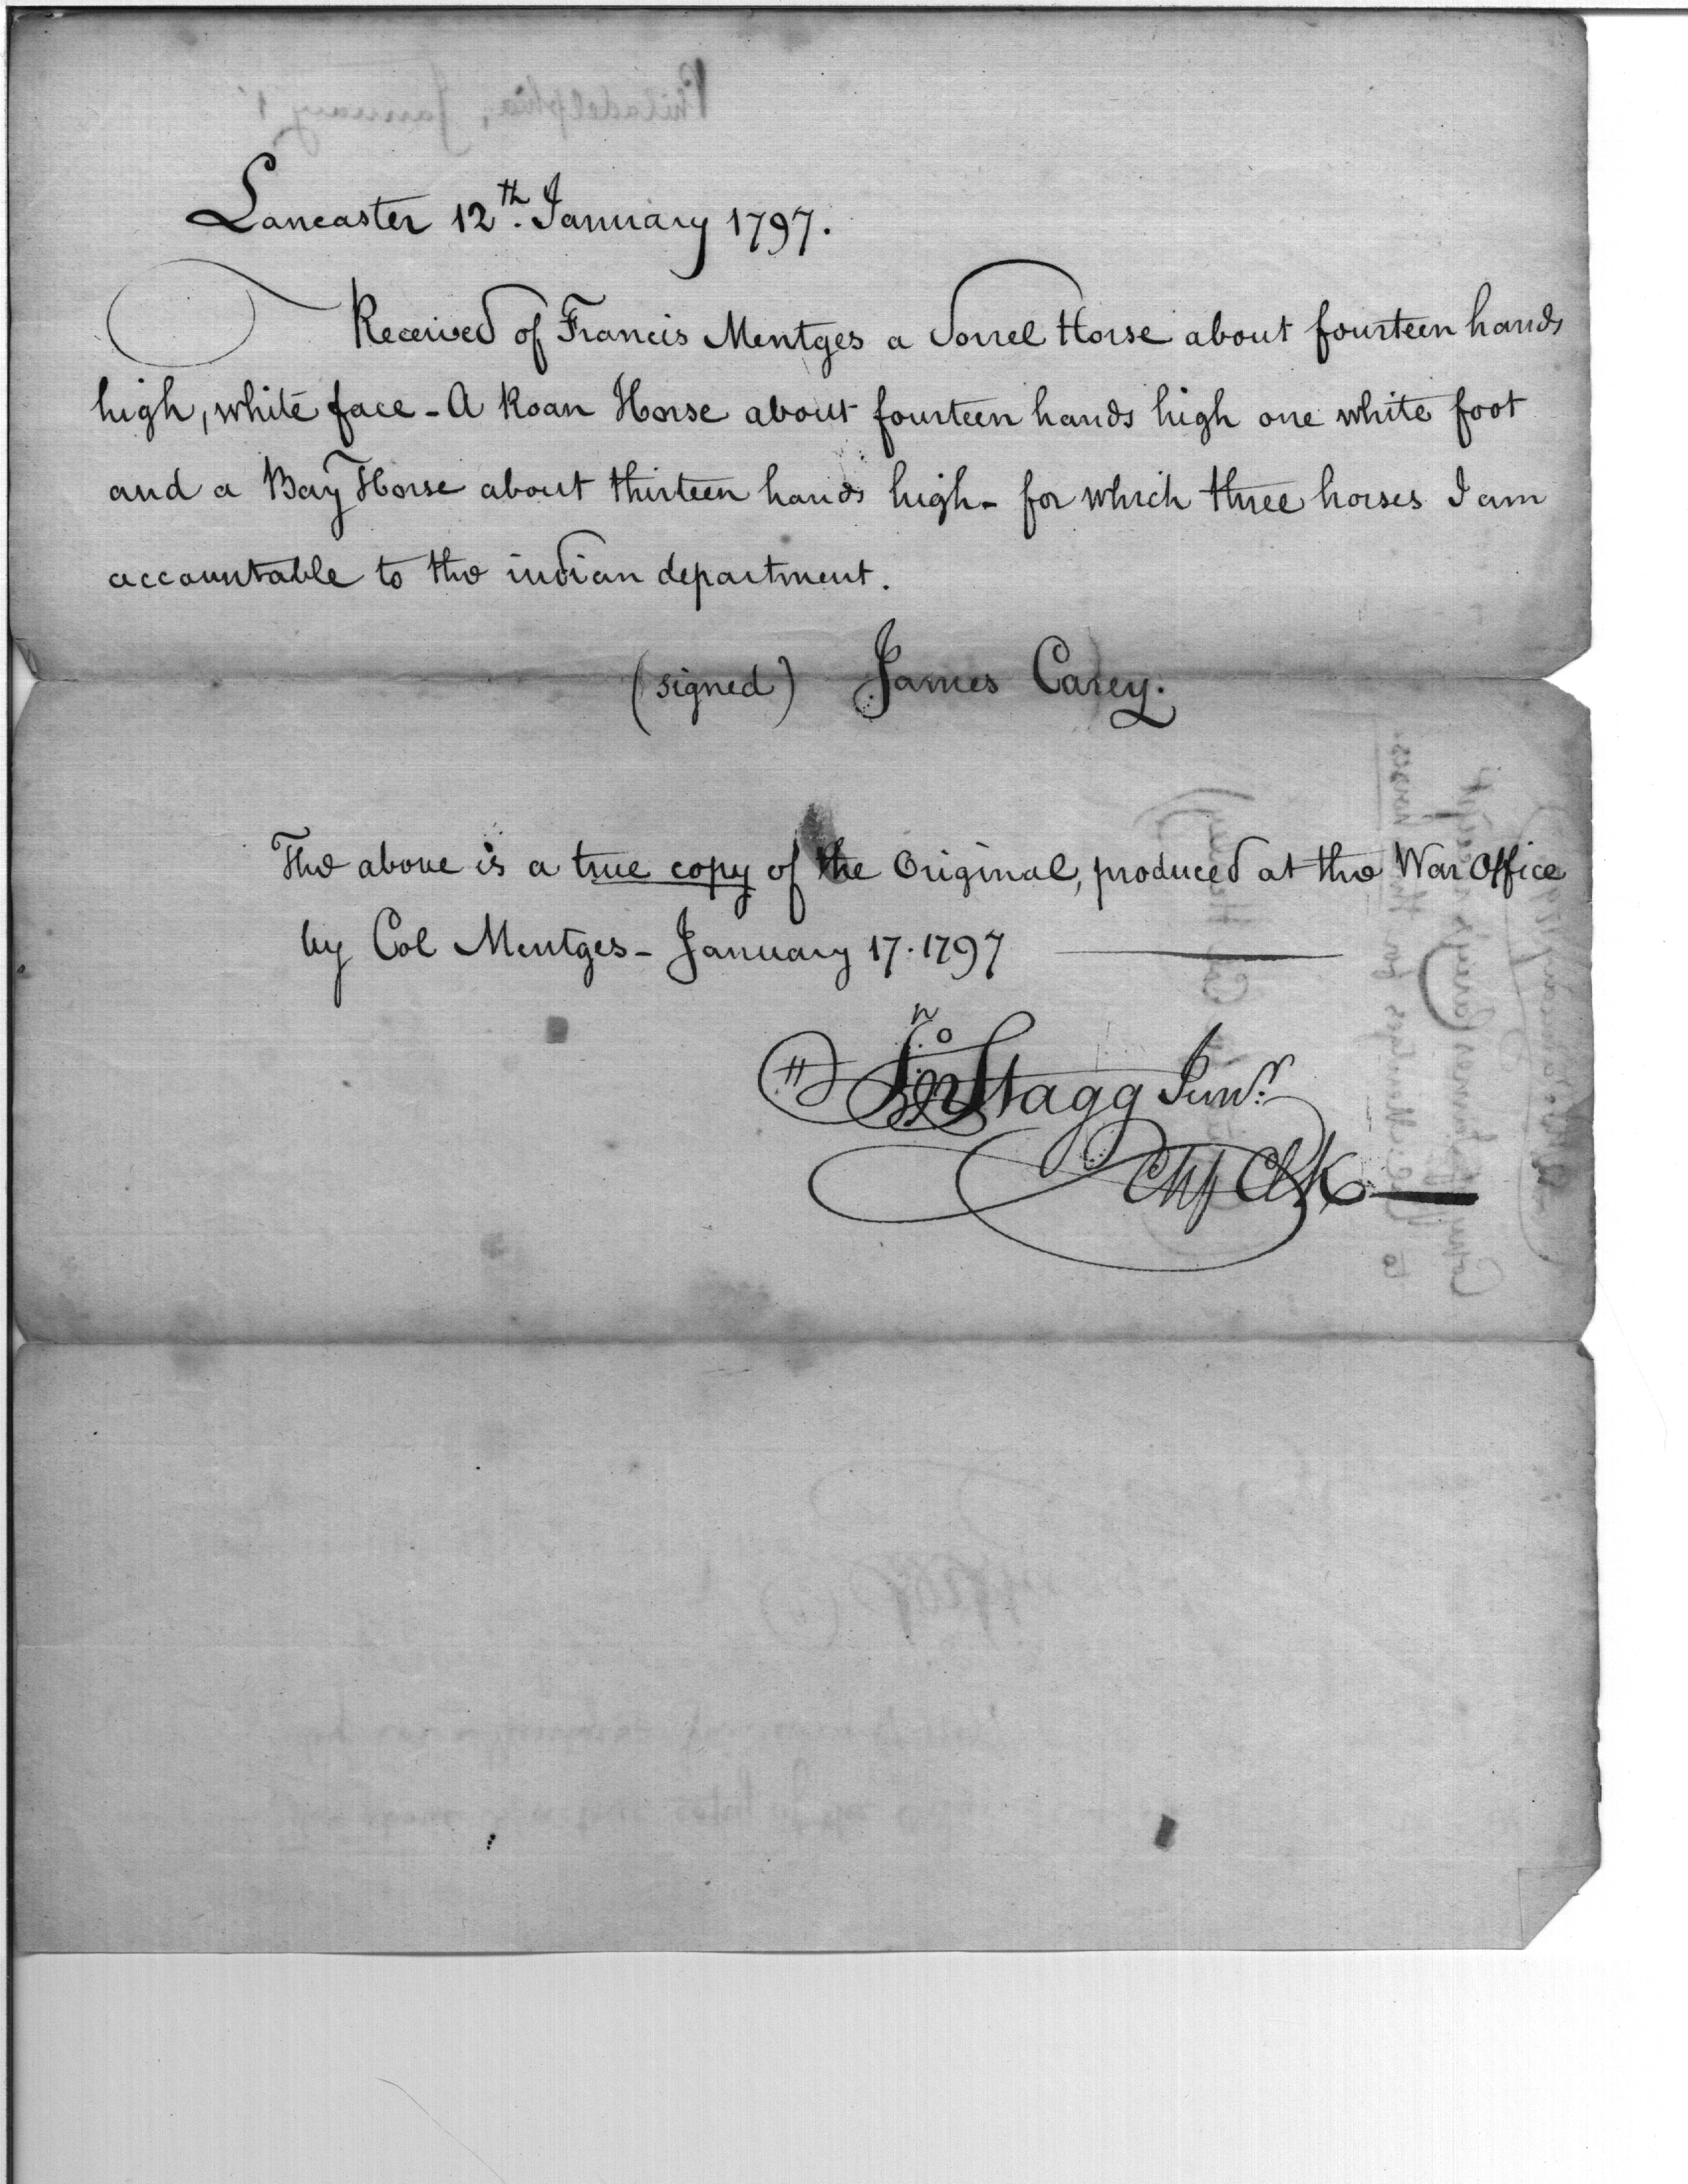 Philadelphia, January 1
Lancaster 12th. January 1797.
Received of Francis Mentges a Sorrel Horse about fourteen hands
high, white face - A Roan Horse about fourteen hands high one white foot
and a Bay Horse about thirteen hands high - for which three horses I am
accountable to the indian department.
(signed) James Carey.
The above is a true copy of the Original, produced at the War Office
by Col Mentges - January 17. 1797
Jno Stagg Junr.
Chf Clk